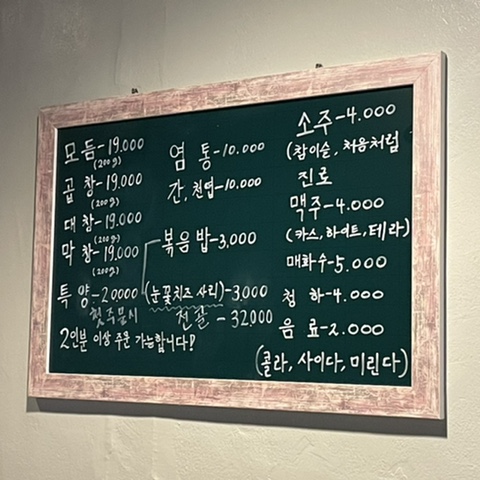 모듬-19.000
(200g)
곱창-19.000
(200g)
대창-19.000
(200g)
막창-19.000
(200g)
특양-20000
첫주문시
2인분 이상 주문 가능합니다!
염통-10.000
간, 천엽-10.000
볶음밥-3,000
(눈꽃치즈 사리)-3,000
전골-32000
소주-4.000
(참이슬, 처음처럼
진로
맥주-4.000
(카스, 하이트, 테라)
매화수-5.000
청하-4.000
음료-2.000
(콜라, 사이다, 미린다)